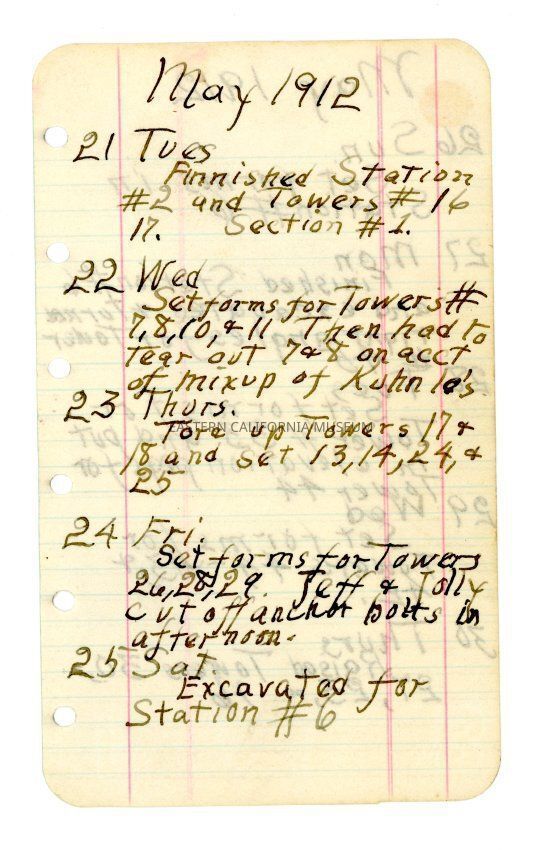 May 1912
21 Tues
Finnished Station
#2 and Towers # 16
17. Section #1.
22 Wed
Set forms for Towers #
7, 8, 10, & 11 Then had to
tear out 7 & 8 on acct
of mixup of Kuhnle's.
23 Thurs.
EASTERN CALIFORNIA MUSEUM
Tore up Towers 17 &
18 and set 13, 14, 24, &
25
24 Fri.
Set forms for Towers
26, 28, 29. Jeff & Jolly
cut off anchor bolts in
afternoon.
25 Sat
Excavated for
Station #6